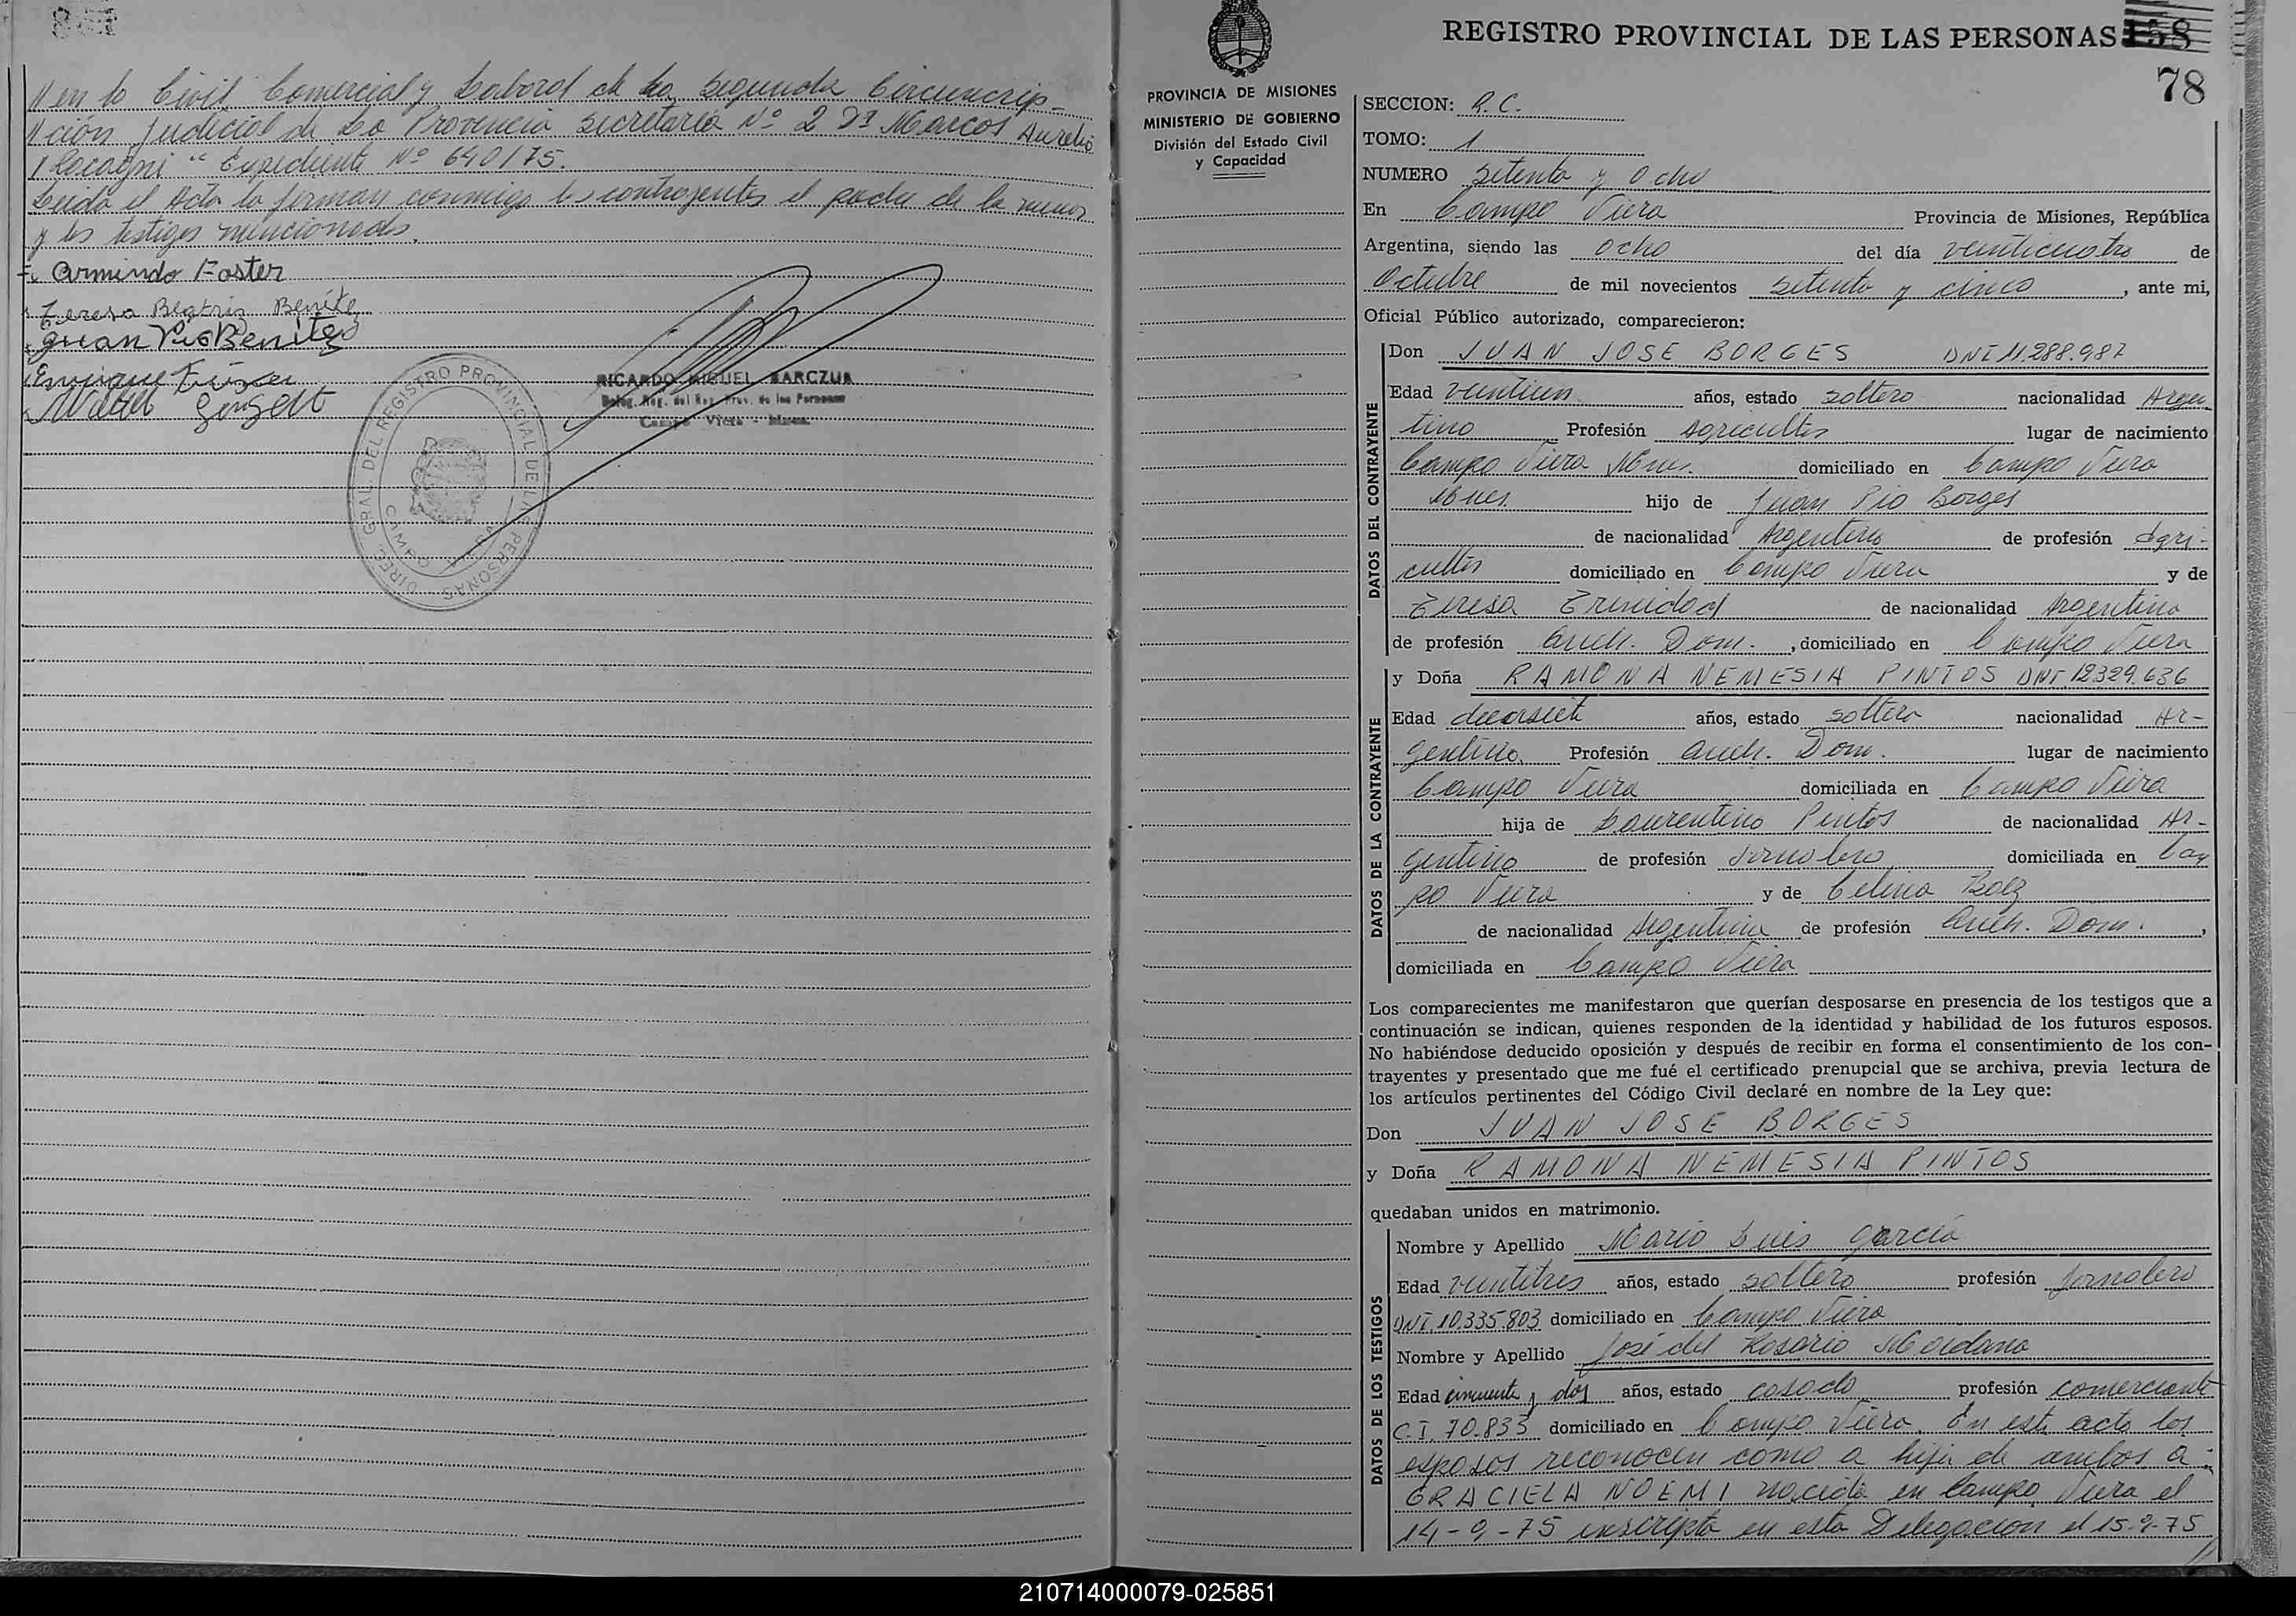 // en lo Civil Comercial y Laboral de la Segunda Circunscrip-
// ción Judicial de la Provincia Secretaría Nº 2 Dr Marcos Aurelio
" Expediente Nº 640/75.
Leída el Acta la firman conmigo los contrayentes el padre de la menor
y los testigos mencionados.
Armindo Foster
Teresa Beatriz Benitez
Juan Pio Benitez
Enrique
RICARDO MIGUEL SARCZUK
Deleg. Reg. del Reg. Prov. de las Personas
Campo Viera - Mnes.
DIREC. GRAL. DEL REGISTRO PROVINCIAL DE LAS PERSONAS
CAMPO VIERA
REGISTRO PROVINCIAL DE LAS PERSONAS 158
78
PROVINCIA DE MISIONES
MINISTERIO DE GOBIERNO
División del Estado Civil
y Capacidad
SECCION: R.C.
TOMO: 1
NUMERO Setenta y Ocho
En Campo Viera Provincia de Misiones, República
Argentina, siendo las ocho del día veinticuatro de
Octubre de mil novecientos setenta y cinco, ante mi,
Oficial Público autorizado, comparecieron:
DATOS DEL CONTRAYENTE
Don JUAN JOSE BORGES DNI 11.288.987
Edad veintiun años, estado soltero nacionalidad Argen
tino Profesión Agricultor lugar de nacimiento
Campo Viera Mnes. domiciliado en Campo Viera
Mnes. hijo de Juan Pio Borges
de nacionalidad Argentino de profesión Agri-
cultor domiciliado en Campo Viera y de
Teresa Trinidad de nacionalidad Argentina
de profesión Queh. Dom., domiciliado en Campo Viera
DATOS DE LA CONTRAYENTE
y Doña RAMONA NEMESIA PINTOS DNI 12.329.636
Edad diecisiete años, estado soltera nacionalidad Ar-
gentina Profesión Queh. Dom. lugar de nacimiento
Campo Viera domiciliada en Campo Viera
hija de Laurentino Pintos de nacionalidad Ar-
gentino de profesión Jornalero domiciliada en Cam
po Viera y de Celina Bolz
de nacionalidad Argentina de profesión Queh. Dom.,
domiciliada en Campo Viera
Los comparecientes me manifestaron que querían desposarse en presencia de los testigos que a
continuación se indican, quienes responden de la identidad y habilidad de los futuros esposos.
No habiéndose deducido oposición y después de recibir en forma el consentimiento de los con-
trayentes y presentado que me fué el certificado prenupcial que se archiva, previa lectura de
los artículos pertinentes del Código Civil declaré en nombre de la Ley que:
Don JUAN JOSE BORGES
y Doña RAMONA NEMESIA PINTOS
quedaban unidos en matrimonio.
DATOS DE LOS TESTIGOS
Nombre y Apellido Mario Luis García
Edad veintitres años, estado soltero profesión Jornalero
DNI. 10.335.803 domiciliado en Campo Viera
Nombre y Apellido José del Rosario Maidana
Edad cincuenta y dos años, estado casado profesión comerciante
C.I. 70.833 domiciliado en Campo Viera. En este acto los
esposos reconocen como a hija de ambos a:
GRACIELA NOEMI nacida en Campo Viera el
14-9-75 inscripta en esta Delegacion el 15-9-75
//
210714000079-025851